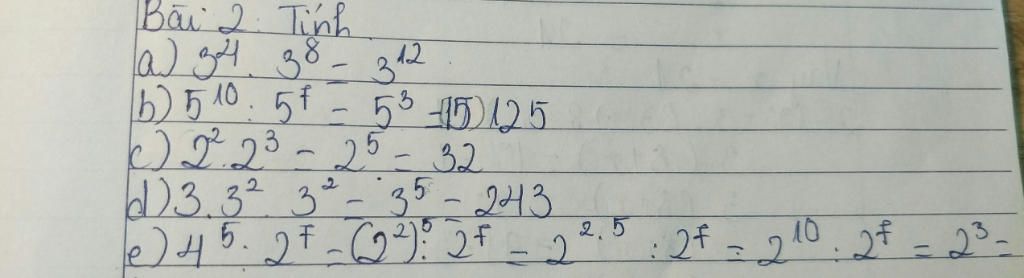 Bài 2: Tính
a) 3⁴. 3⁸ = 3¹²
b) 5¹⁰: 5⁷ = 5³ = 125
c) 2².2³ = 2⁵ = 32
d) 3.3². 3² = 3⁵ = 243
e) 4⁵: 2⁷ = (2²)⁵: 2⁷ = 2².⁵ : 2⁷ = 2¹⁰ : 2⁷ = 2³ =